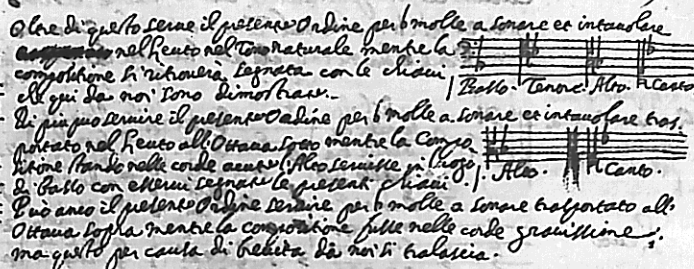 Oltre di questo serve il presente Ordine per b molle a sonare et intavolare
nel leuto nel Tono naturale mentre la
compositione si ritroverà segnata con le chiavi
che qui da noi sono dimostrate.
Basso. Tenore. Alto. Canto
Di piu puo servire il presente Ordine per b molle a sonare et intavolare tras,
portato nel leuto all'Ottava sotto mentre la Compo
sitione stando nelle corde acute l'Alto servisse p luogo
di Basso con esservi segnate le presenti chiavi.
Alto. Canto.
Può anco il presente Ordine servire per b molle a sonare trasportato all'
Ottava sopra mentre la compositione fusse nelle corde gravissime,
ma questo per causa di brevita da noi si tralascia.